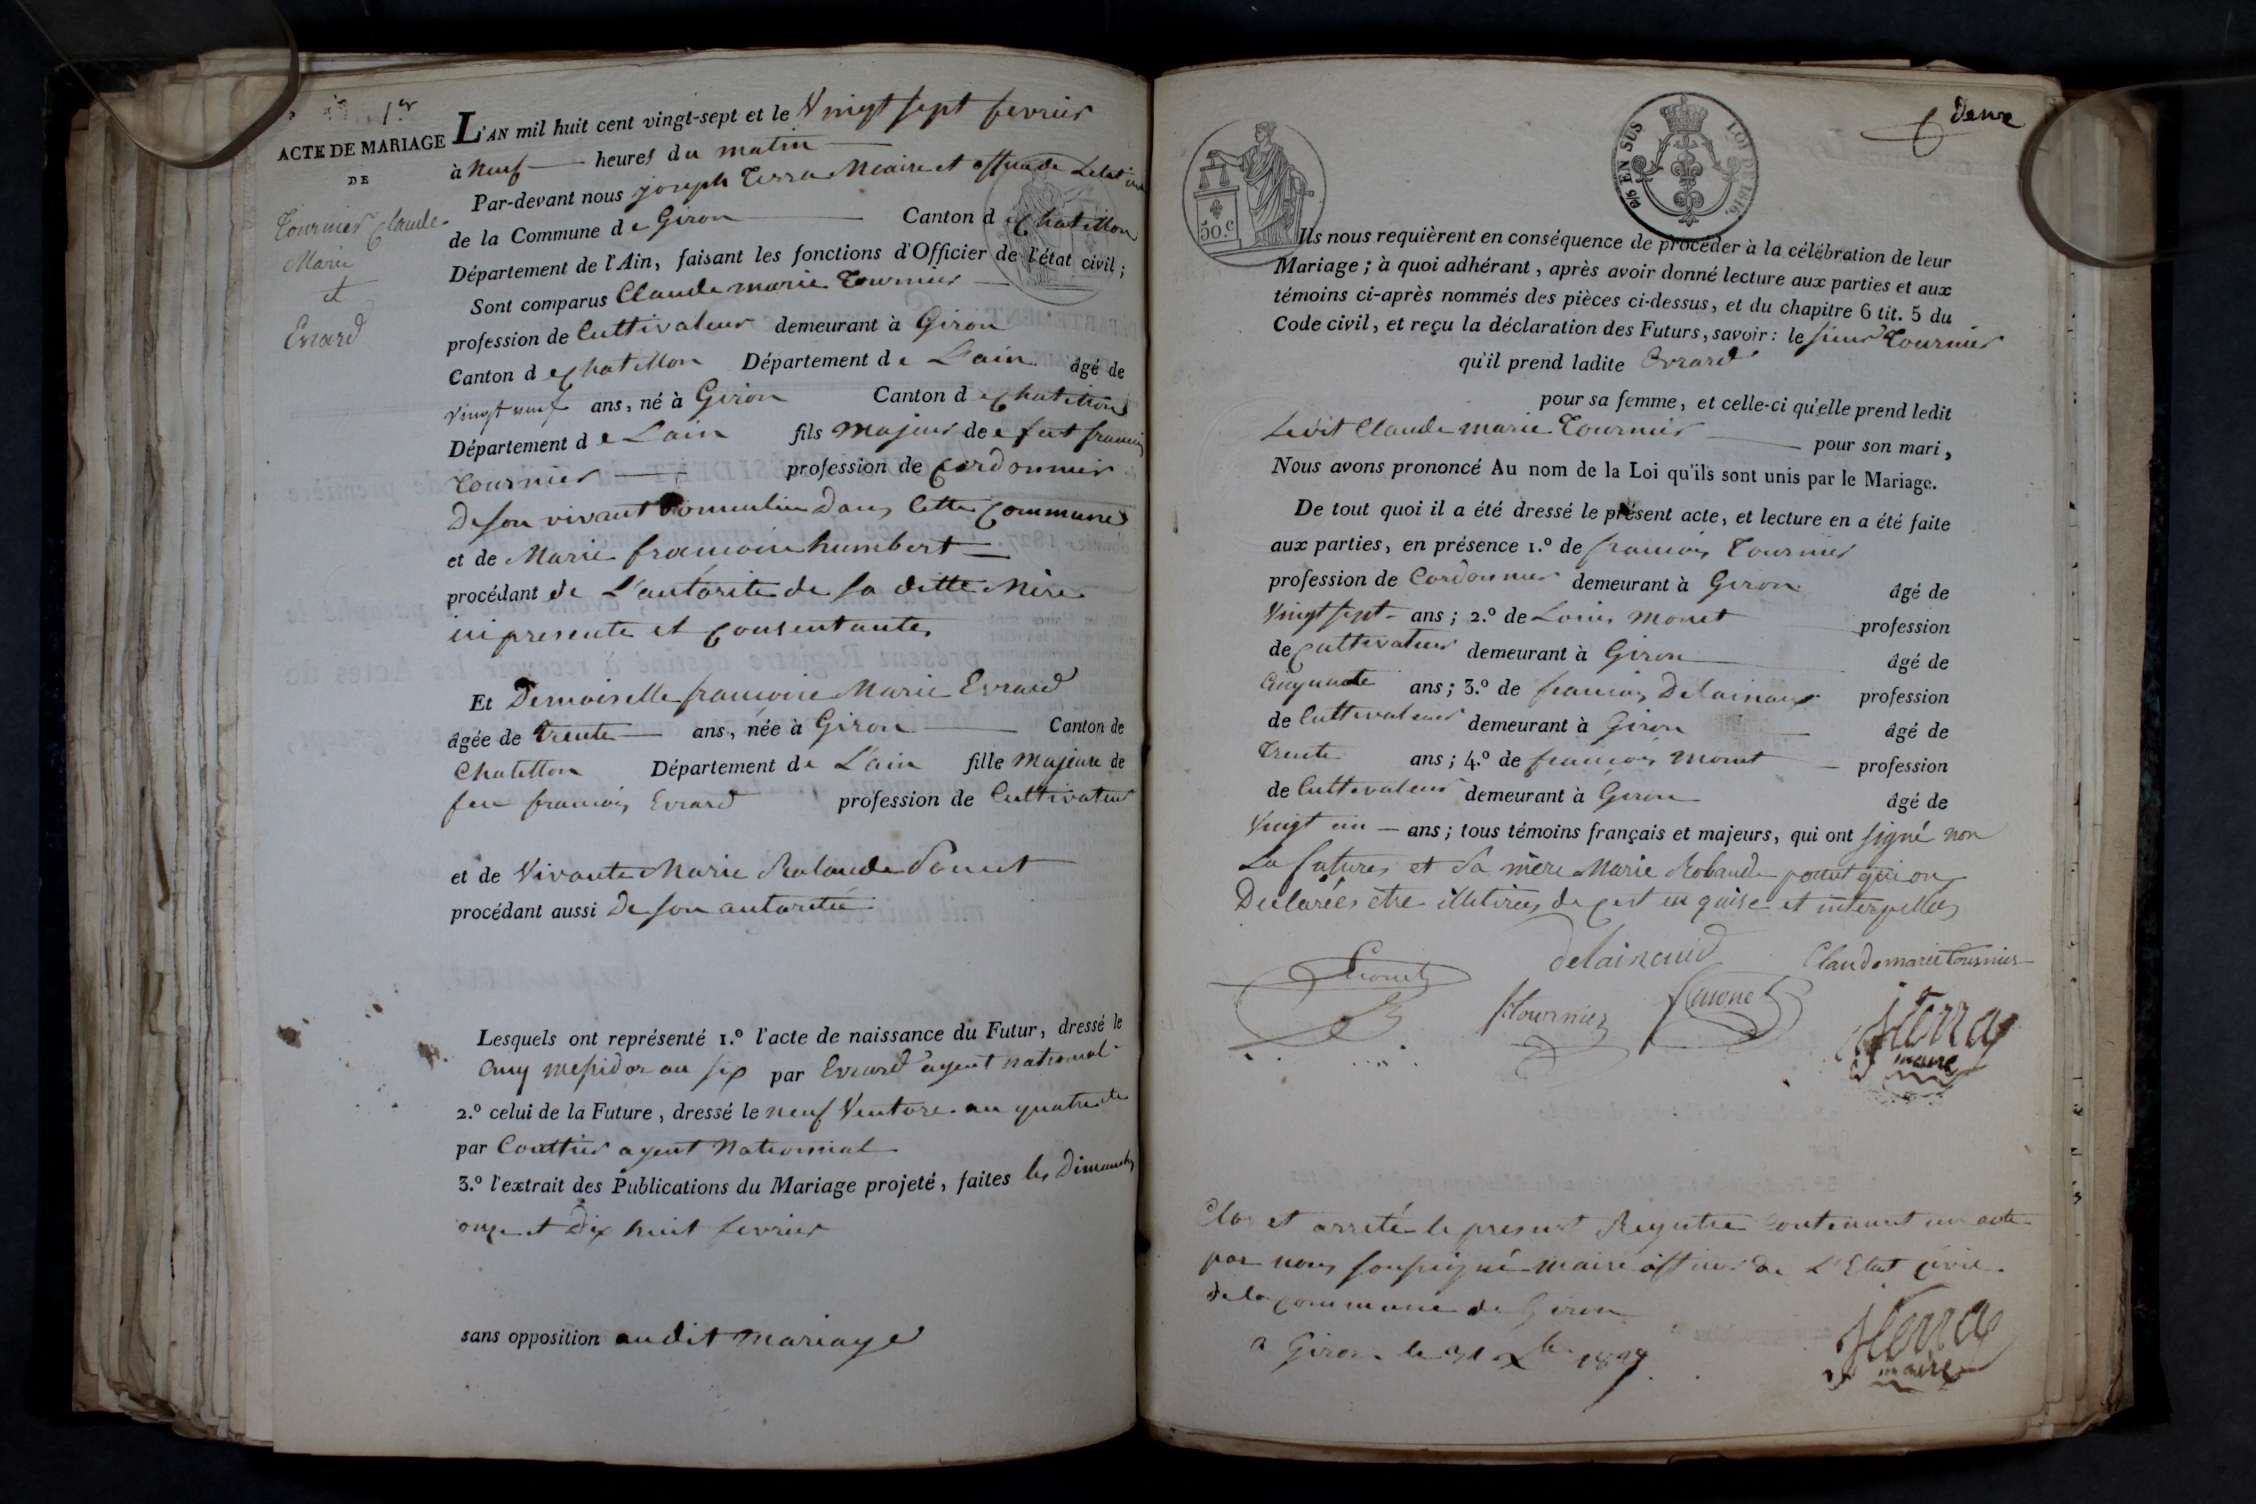 1.er
ACTE DE MARIAGE
DE
Tournier Claude
Marie
et
Evrard
L'AN mil huit cent vingt-sept et le Vingt sept fevrier
à neuf heures du matin
Par-devant nous joseph Terra Maire et
de la Commune de Giron Canton de Chatillon
Département de l'Ain, faisant les fonctions d'Officier de l'état civil ;
Sont comparus Claude marie Tournier
profession de Cultivateur demeurant à Giron
Canton de Chatillon Département de L'ain âgé de
vingt neuf ans, né à Giron Canton de Chatillon
Département de L'ain fils majeur de feu francois
Tournier profession de Cordonnier
De son vivant Domicilié Dans Cette Commune
et de Marie francoise humbert
procédant de L'autorite de sa ditte Mère
ici presente et Consentante
Et Demoiselle francoise Marie Evrard
âgée de trente ans, née à Giron Canton de
Chatillon Département de L'ain fille Majeure de
feu francois Evrard profession de Cultivateur
et de Vivante Marie Rolande Ponret
procédant aussi De son autorité
Lesquels ont représenté 1.º l'acte de naissance du Futur, dressé le
Cinq messidor an six par Evrard agent national
2.º celui de la Future, dressé le neuf Ventose an quatre
par agent National
3.º l'extrait des Publications du Mariage projeté, faites les Dimanches
onze et Dix huit fevrier
sans opposition audit mariage
Deux
50.c
EN SUS
LOI DE 1816.
Ils nous requièrent en conséquence de procéder à la célébration de leur
Mariage ; à quoi adhérant, après avoir donné lecture aux parties et aux
témoins ci-après nommés des pièces ci-dessus, et du chapitre 6 tit. 5 du
Code civil, et reçu la déclaration des Futurs, savoir : le sieur Tournier
qu'il prend ladite Evrard
pour sa femme, et celle-ci qu'elle prend ledit
Ledit Claude marie Tournier pour son mari,
Nous avons prononcé Au nom de la Loi qu'ils sont unis par le Mariage.
De tout quoi il a été dressé le présent acte, et lecture en a été faite
aux parties, en présence 1.º de francois Tournier
profession de Cordonnier demeurant à Giron âgé de
Vingt sept ans ; 2.º de Louis Monet profession
de Cultivateur demeurant à Giron âgé de
Cinquante ans ; 3.º de francois Delainaud profession
de Cultivateur demeurant à Giron âgé de
Trente ans ; 4.º de francois Monet profession
de Cultivateur demeurant à Giron âgé de
Vingt un ans ; tous témoins français et majeurs, qui ont signé non
La future et Sa mère Marie Rolande qui ont
Declarées etre illitirées de ce et interpellées
delainaud
Claude marie Tournier
fTournier
fMonet
JTerra
maire
Clos et arreté le present Registre Contenant un acte
par nous soussigné maire officier de L'Etat Civil
de la Commune de Giron
a Giron le 31 Xbre 1827
JTerra
maire